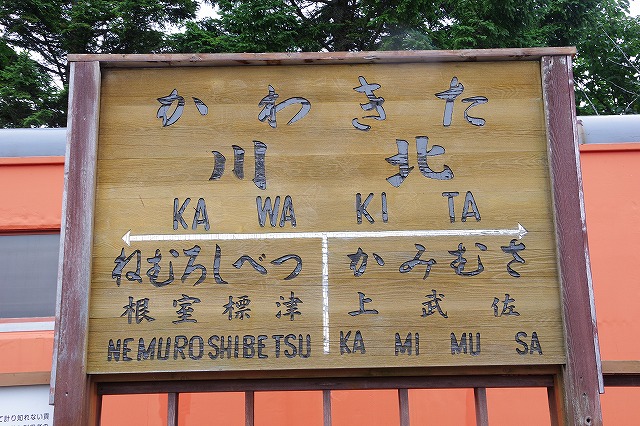 かわきた
川北
KAWAKITA
ねむろしべつ かみむさ
根室標津 上武佐
NEMUROSHIBETSU KAMIMUSA
て計り知れない貢